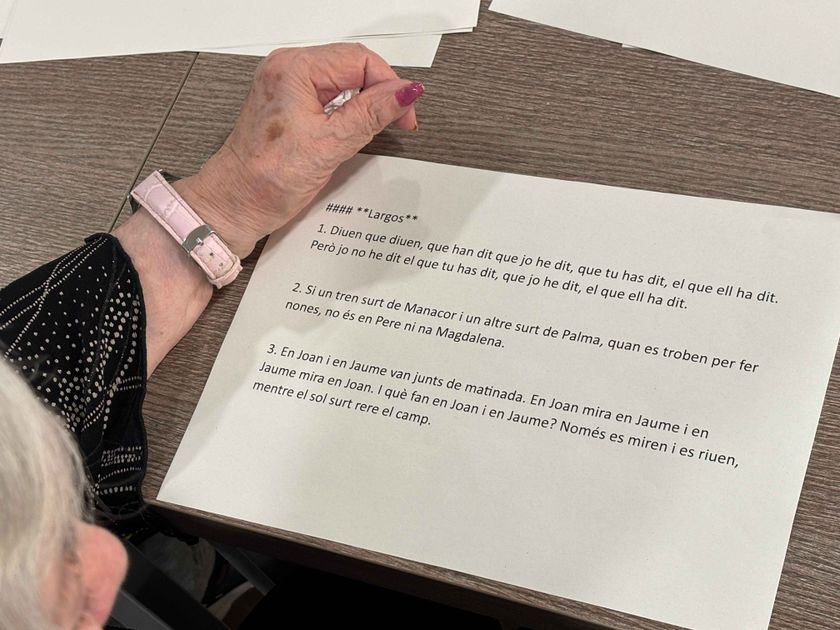 #### **Largos**
1. Diuen que diuen, que han dit que jo he dit, que tu has dit, el que ell ha dit.
Però jo no he dit el que tu has dit, que jo he dit, el que ell ha dit.
2. Si un tren surt de Manacor i un altre surt de Palma, quan es troben per fer
nones, no és en Pere ni na Magdalena.
3. En Joan i en Jaume van junts de matinada. En Joan mira en Jaume i en
Jaume mira en Joan. I què fan en Joan i en Jaume? Només es miren i es riuen,
mentre el sol surt rere el camp.